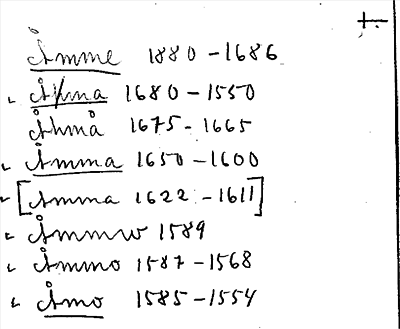 Åmme 1880-1686
Åhma 1680-1550
Åhmå 1675-1665
Åmma 1650-1600
[Åmma 1622-1611]
Åmmw 1589
Åmmo 1587-1568
Åmo 1585-1554